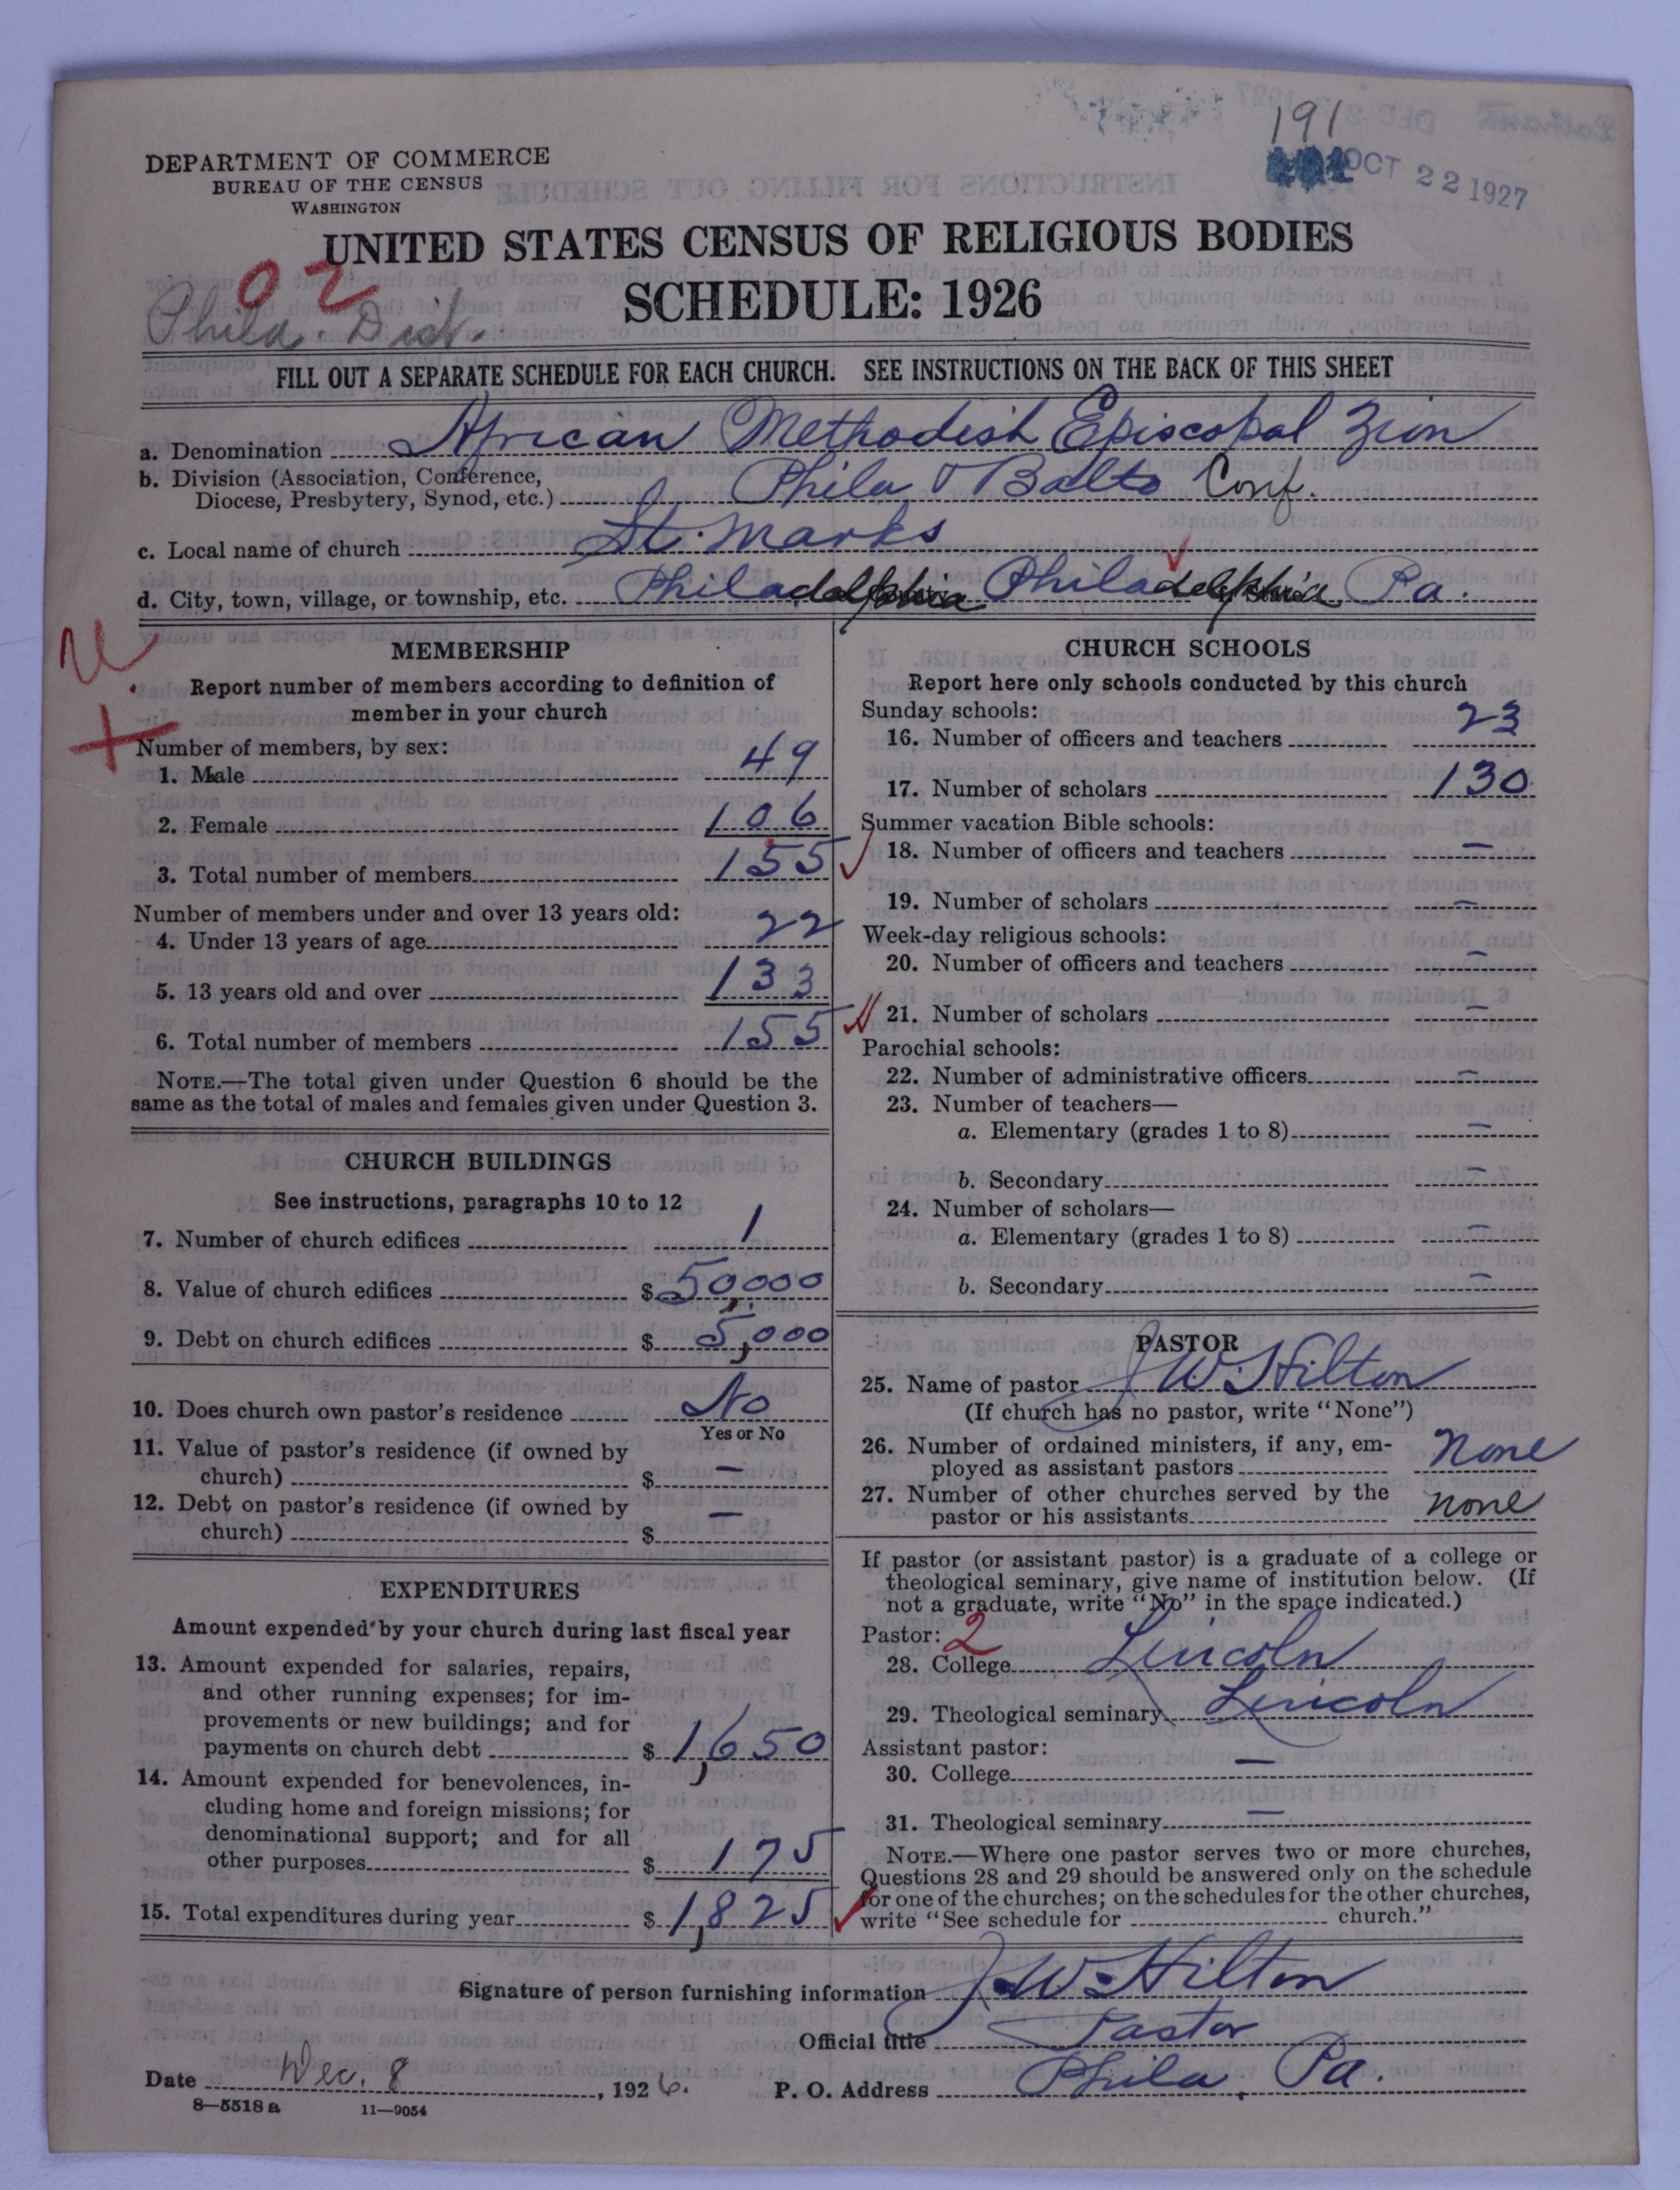 191
OCT 22 1927
DEPARTMENT OF COMMERCE
BUREAU OF THE CENSUS
WASHINGTON
UNITED STATES CENSUS OF RELIGIOUS BODIES
SCHEDULE: 1926
02
Phila. Dist.
FILL OUT A SEPARATE SCHEDULE FOR EACH CHURCH. SEE INSTRUCTIONS ON THE BACK OF THIS SHEET
a. Denomination African Methodist Episcopal Zion
b. Division (Association, Conference,
Diocese, Presbytery, Synod, etc.) Phila & Balto Conf.
c. Local name of church St. Marks
d. City, town, village, or township, etc. Philadelphia Philadelphia Pa.
MEMBERSHIP
Report number of members according to definition of
member in your church
Number of members, by sex:
1. Male 49
2. Female 106
3. Total number of members 155
Number of members under and over 13 years old:
4. Under 13 years of age 22
5. 13 years old and over 133
6. Total number of members 155
NOTE.—The total given under Question 6 should be the
same as the total of males and females given under Question 3.
CHURCH BUILDINGS
See instructions, paragraphs 10 to 12
7. Number of church edifices 1
8. Value of church edifices $ 50,000
9. Debt on church edifices $ 5,000
10. Does church own pastor's residence No
Yes or No
11. Value of pastor's residence (if owned by
church) $ —
12. Debt on pastor's residence (if owned by
church) $ —
EXPENDITURES
Amount expended by your church during last fiscal year
13. Amount expended for salaries, repairs,
and other running expenses; for im-
provements or new buildings; and for
payments on church debt $ 1,650
14. Amount expended for benevolences, in-
cluding home and foreign missions; for
denominational support; and for all
other purposes $ 175
15. Total expenditures during year $ 1,825
CHURCH SCHOOLS
Report here only schools conducted by this church
Sunday schools:
16. Number of officers and teachers 23
17. Number of scholars 130
Summer vacation Bible schools:
18. Number of officers and teachers —
19. Number of scholars —
Week-day religious schools:
20. Number of officers and teachers —
21. Number of scholars —
Parochial schools:
22. Number of administrative officers —
23. Number of teachers—
a. Elementary (grades 1 to 8) —
b. Secondary —
24. Number of scholars—
a. Elementary (grades 1 to 8) —
b. Secondary —
PASTOR
25. Name of pastor J W. Hilton
(If church has no pastor, write "None")
26. Number of ordained ministers, if any, em-
ployed as assistant pastors None
27. Number of other churches served by the
pastor or his assistants none
If pastor (or assistant pastor) is a graduate of a college or
theological seminary, give name of institution below. (If
not a graduate, write "No" in the space indicated.)
Pastor: 2
28. College Lincoln
29. Theological seminary Lincoln
Assistant pastor:
30. College —
31. Theological seminary —
NOTE.—Where one pastor serves two or more churches,
Questions 28 and 29 should be answered only on the schedule
for one of the churches; on the schedules for the other churches,
write "See schedule for church."
Signature of person furnishing information J. W. Hilton
Official title Pastor
Date Dec. 8, 1926. P. O. Address Phila, Pa.
8—5518 a 11—9054